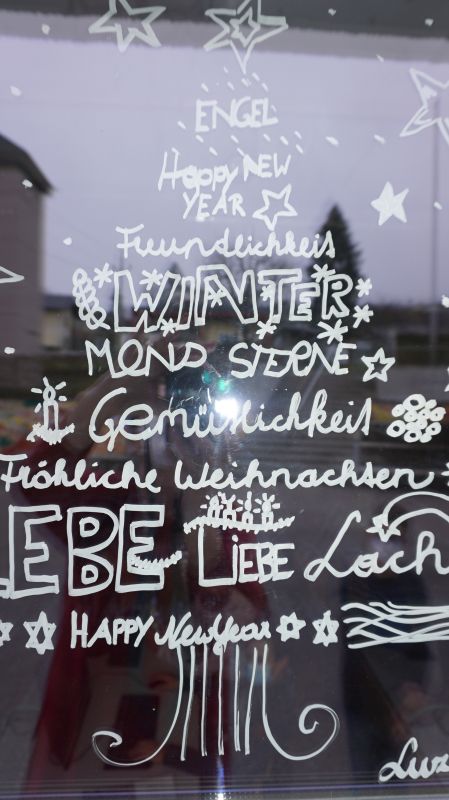 ENGEL
Happy NEW
YEAR
Freundlichkeit
WINTER
MOND STERNE
Gemütlichkeit
Fröhliche Weihnachten
LEBE LiEBE Lach
HAPPY New Year